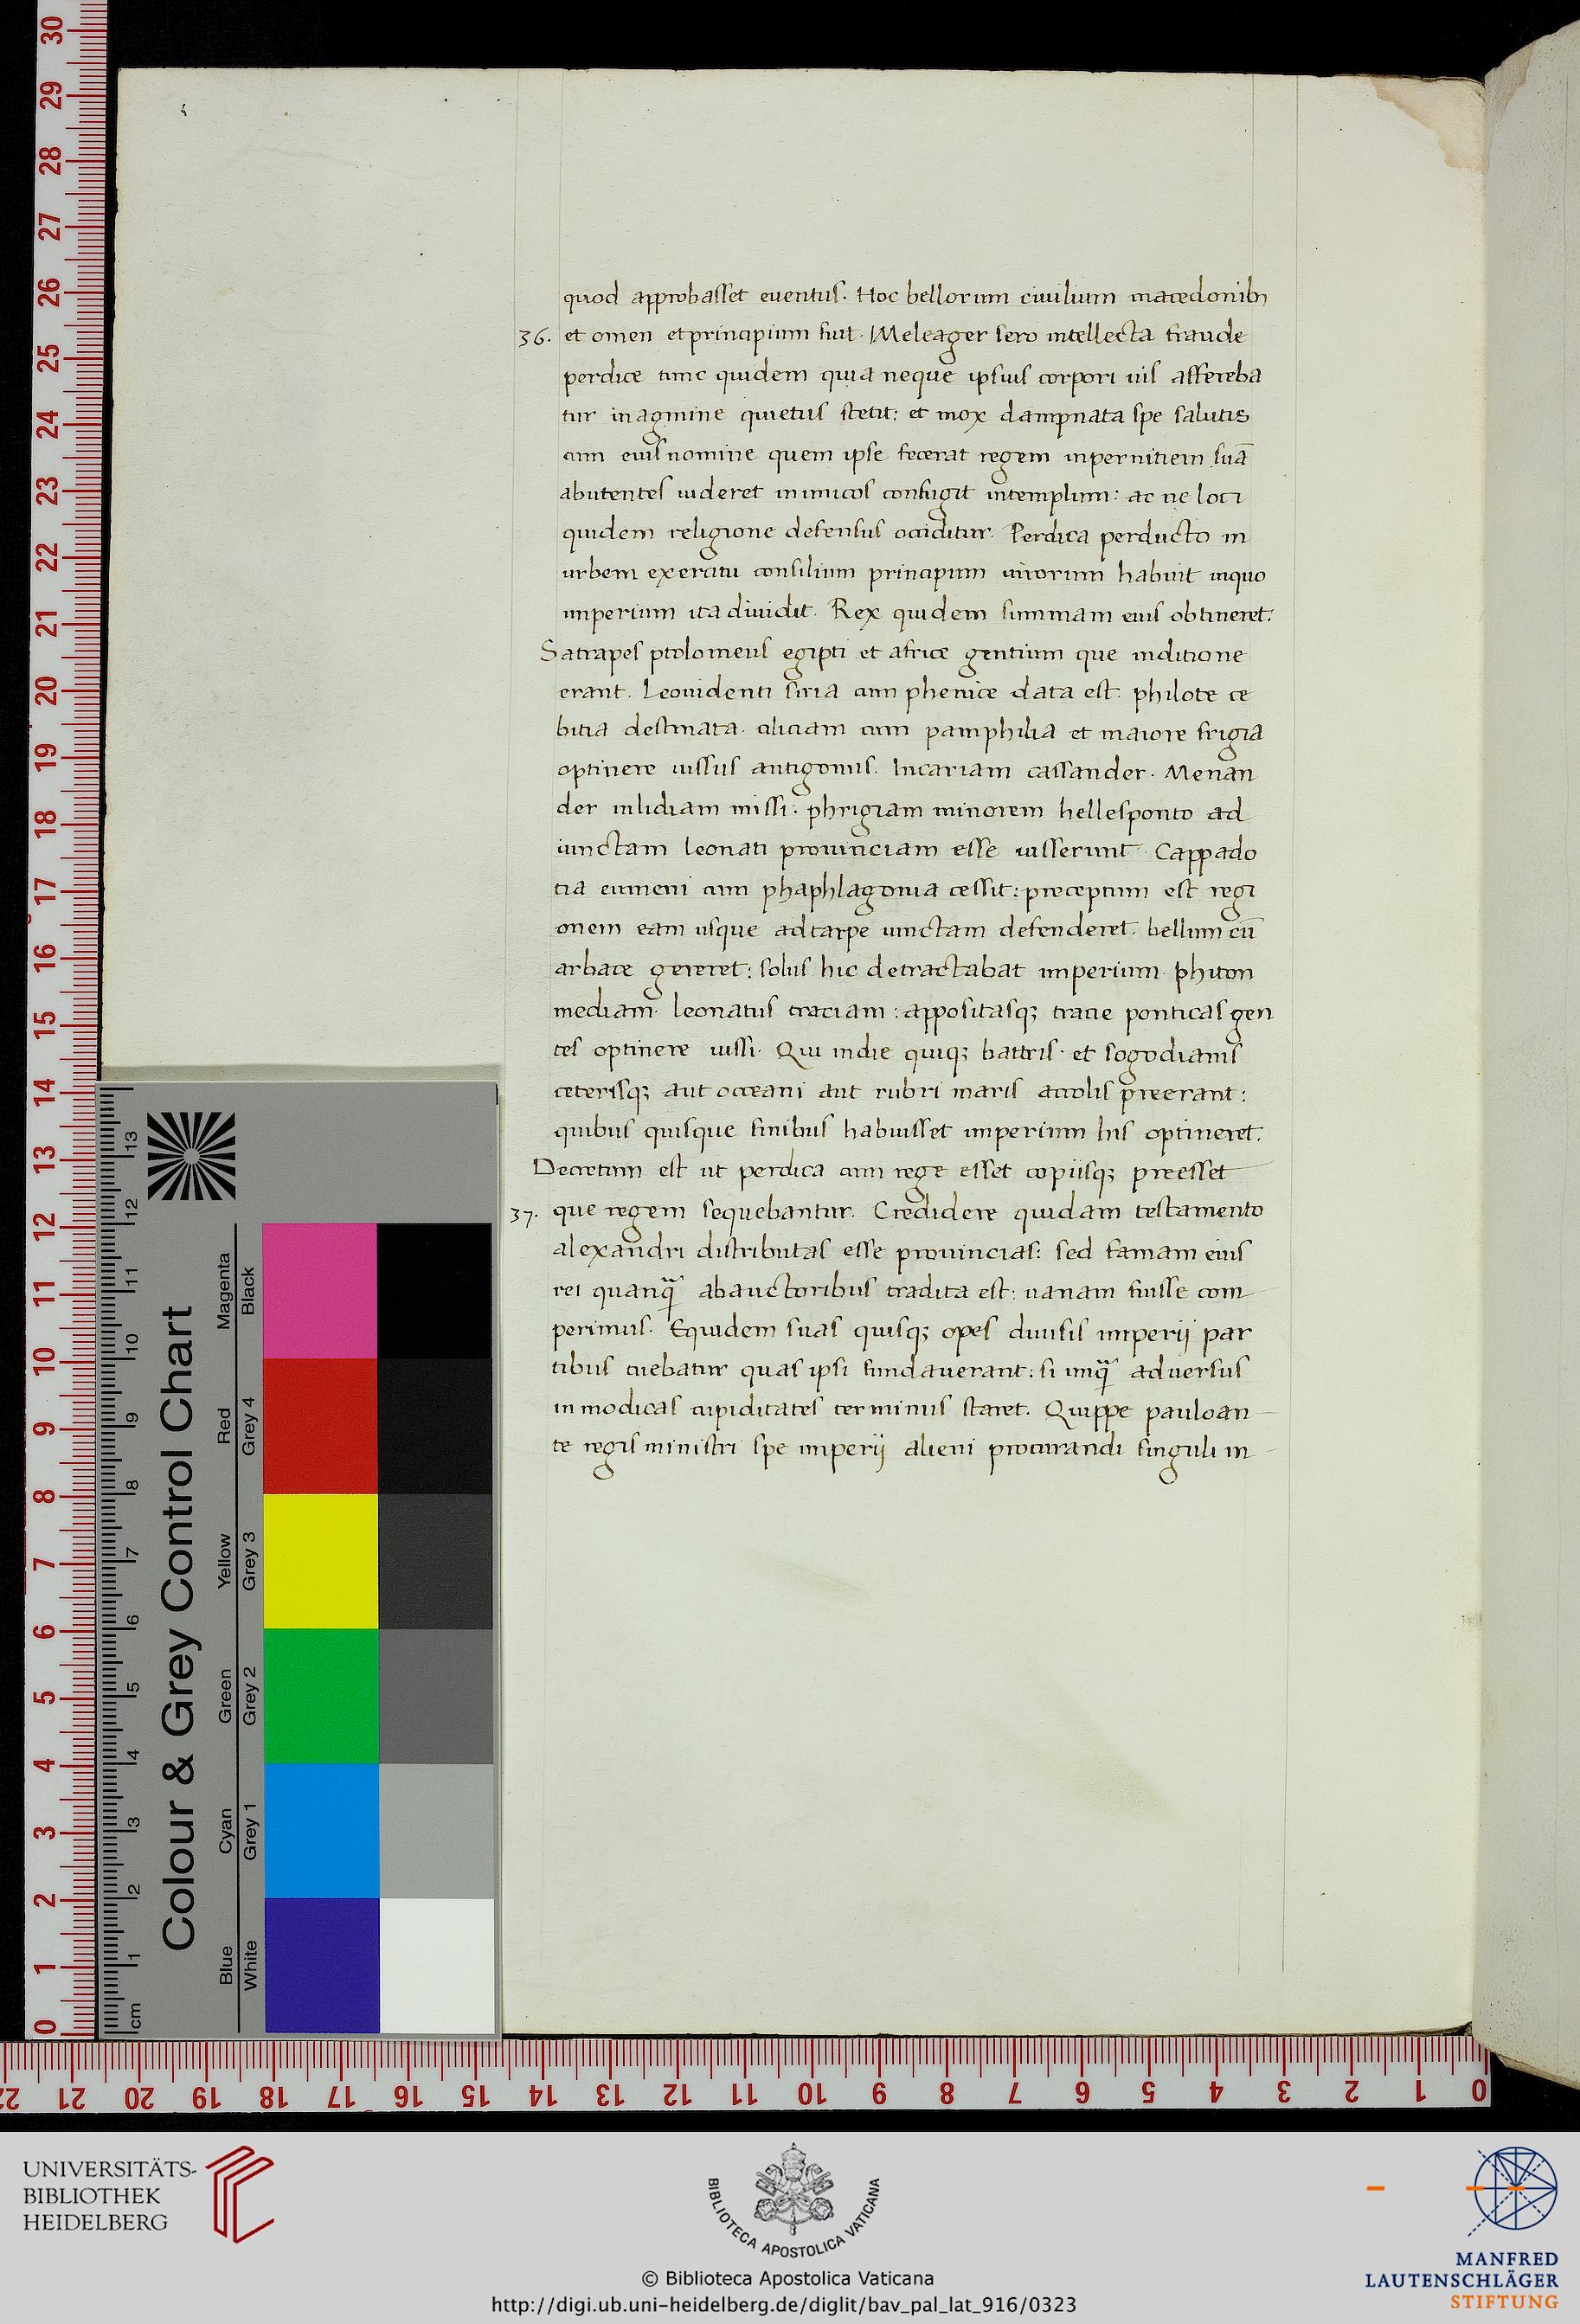 quod approbasset euentus. Hoc bellorum ciuilium macedonib;
36. et omen et principium fuit. Meleager sero intellecta fraude
perdice tunc quidem quia neque ipsius corpori uis affereba
tur in agmine quietus stetit: et mox dampnata spe salutis
cum eius nomine quem ipse fecerat regem in pernitiem suā
abutentes uideret inimicos confugit in templum: ac ne loci
quidem religione defensus occiditur. Perdica perducto in
urbem exercitu consilium principum uirorum habuit in quo
imperium ita diuidit. Rex quidem summam eius obtineret:
Satrapes ptolomeus egipti et africe gentium que in ditione
erant. Leouidenti siria cum phenice data est. philote ce
bitia destinata. ciliciam cum pamphilia et maiore frigia
optinere iussus antigonus. In cariam cassander. Menan
der in lidiam missi. phrigiam minorem hellesponto ad
iunctam leonati prouinciam esse iusserunt. Cappado
tia eumeni cum phaphlagonia cessit: preceptum est regi
onem eam usque ad tarpe uinctam defenderet. bellum cū
arbate gereret: solus hic detractabat imperium phiton
mediam. leonatus traciam: appositasq; tracie ponticas gen
tes optinere iussi. Qui indie quiq; battris. et sogodianis
ceterisq; aut occeani aut rubri maris accolis preerant:
quibus quisque finibus habuisset imperium his optineret.
Decretum est ut perdica cum rege esset copiisq; preesset
37. que regem sequebantur. Credidere quidam testamento
alexandri distributas esse prouincias: sed famam eius
rei quanq̄ ab auctoribus tradita est: uanam fuisse com
perimus. Equidem suas quisq; opes diuisis imperij par
tibus tuebatur quas ipsi fundauerant: si unq̄ aduersus
inmodicas cupiditates terminus staret. Quippe paulo an
te regis ministri spe imperij alieni procurandi singuli in
Colour & Grey Control Chart
Blue Cyan Green Yellow Red Magenta
White Grey 1 Grey 2 Grey 3 Grey 4 Black
UNIVERSITÄTS-
BIBLIOTHEK
HEIDELBERG
BIBLIOTECA APOSTOLICA VATICANA
© Biblioteca Apostolica Vaticana
http://digi.ub.uni-heidelberg.de/diglit/bav_pal_lat_916/0323
MANFRED
LAUTENSCHLÄGER
STIFTUNG